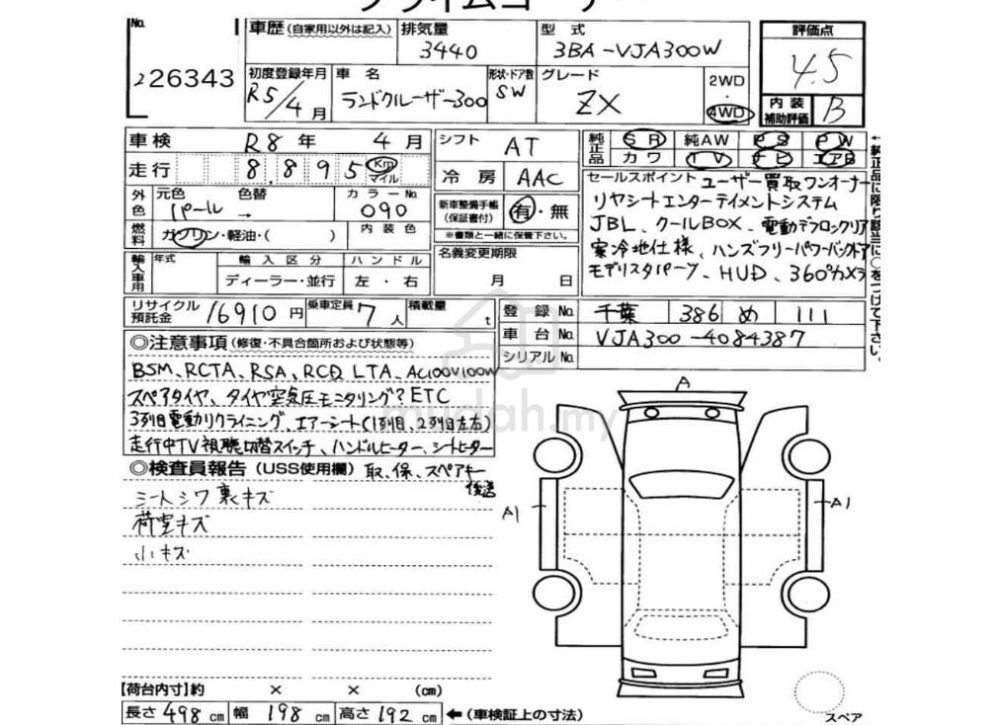 プライムコーナー
No. 226343
車歴(自家用以外は記入)
排気量 3440
型式 3BA-VJA300W
評価点 4.5
内装補助評価 B
初度登録年月 R5/4月
車名 ランドクルーザー300
形状・ドア数 SW
グレード ZX
2WD・4WD
車検 R8年 4月
シフト AT
純正品 SR 純AW PS PW
カワ TV ナビ エアB
走行 8.895 Km マイル
冷房 AAC
外色 元色 パール 色替 → カラーNo. 090
内装色
燃料 ガソリン・軽油・( )
新車整備手帳(保証書付) 有・無
※書類と一緒に保管下さい。
セールスポイント ユーザー買取ワンオーナー
リヤシートエンターテイメントシステム
JBL、クールBOX、電動デフロックリア
寒冷地仕様、ハンズフリーパワーバックドア
モデリスタパーツ、HUD、360°カメラ
輸入車用 年式 輸入区分 ハンドル
ディーラー・並行 左・右
名義変更期限
月 日
リサイクル預託金 16910円
乗車定員 7人
積載量 t
登録No. 千葉 386 め 111
車台No. VJA300-4084387
シリアルNo.
◎注意事項(修復・不具合箇所および状態等)
BSM、RCTA、RSA、RCD、LTA、AC100V100W
スペアタイヤ、タイヤ空気圧モニタリング?ETC
3列目電動リクライニング、エアーシート(1列目、2列目左右)
走行中TV視聴切替スイッチ、ハンドルヒーター、シートヒーター
◎検査員報告(USS使用欄) 取、保、スペアキー
後送
シートシワ裏キズ
荷室キズ
小キズ
A
A1
A1
【荷台内寸】約 × × (cm)
長さ 498 cm 幅 198 cm 高さ 192 cm ←(車検証上の寸法)
スペア
mudah.my